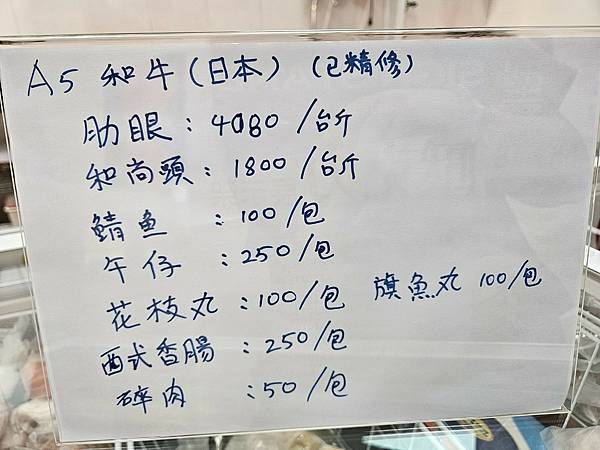 A5 和牛(日本) (已精修)
肋眼:4080/台斤
和尚頭:1800/台斤
鯖魚 :100/包
午仔 :250/包
花枝丸:100/包 旗魚丸 100/包
西式香腸 :250/包
碎肉 :50/包